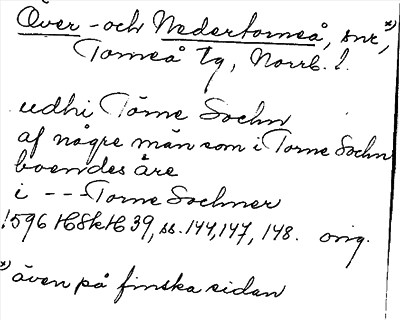 Över- och Nedertorneå, snr, *)
Torneå tg, Norrb. l.
udhi Tårne Sochn
af någre män som i Torne Sochn
boendes äre
i - - - Torne Sochner
1596 HSkH 39, ss. 144, 147, 148. orig.
*) även på finska sidan